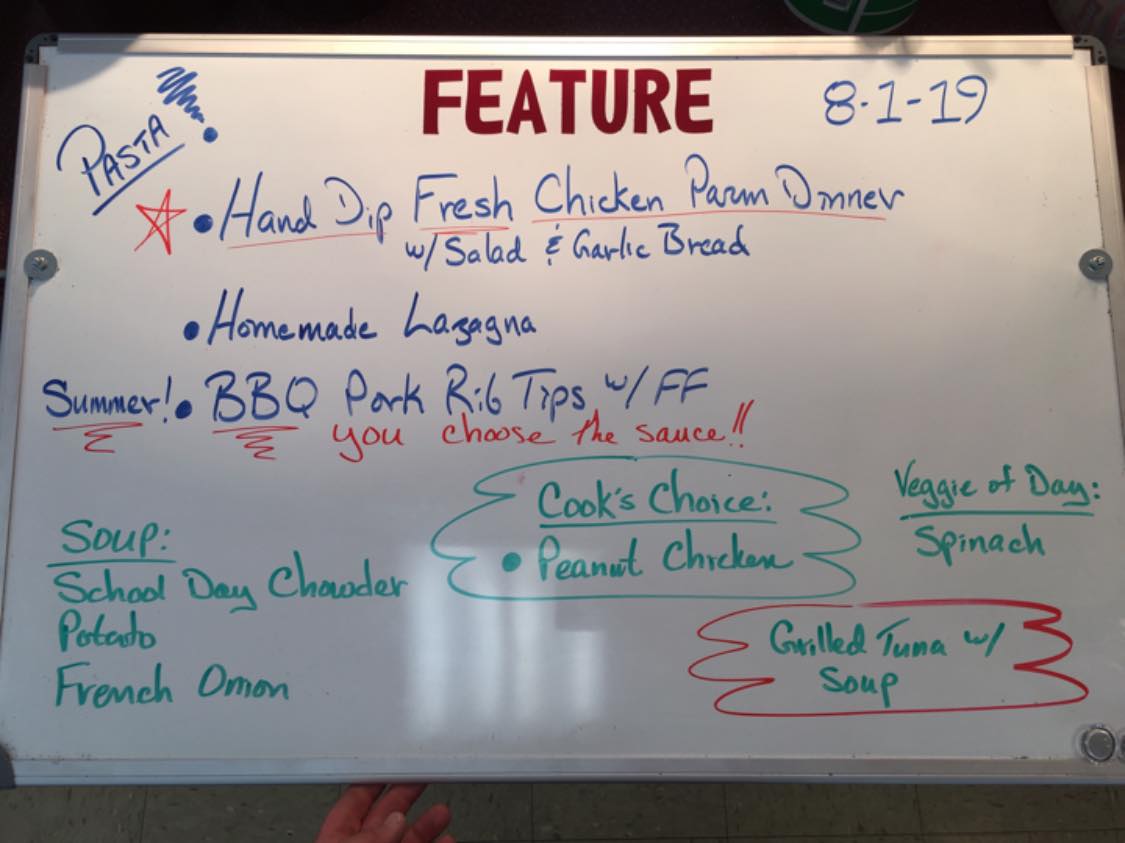 FEATURE
8-1-19
PASTA!
• Hand Dip Fresh Chicken Parm Dinner
w/ Salad & Garlic Bread
• Homemade Lazagna
Summer! • BBQ Pork Rib Tips w/ FF
you choose the sauce!!
Cook's Choice:
• Peanut Chicken
Veggie of Day:
Spinach
Soup:
School Day Chowder
Potato
French Onion
Grilled Tuna w/
Soup